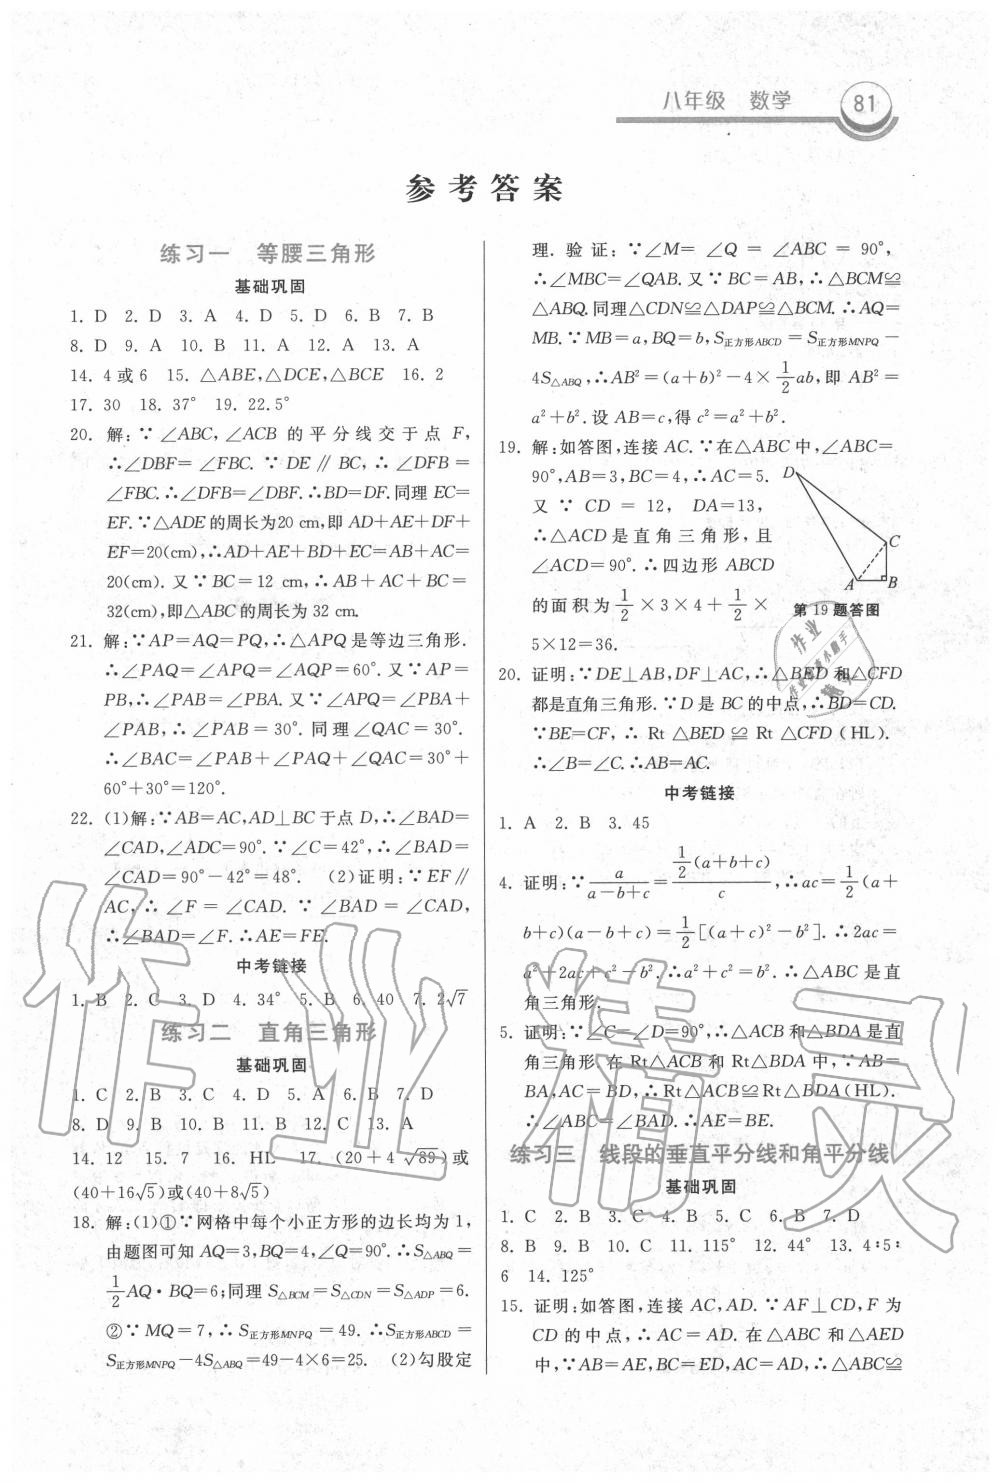 八年级 数学 81
参考答案
练习一 等腰三角形
基础巩固
1. D 2. D 3. A 4. D 5. D 6. B 7. B
8. D 9. A 10. B 11. A 12. A 13. A
14. 4或6 15. △ABE,△DCE,△BCE 16. 2
17. 30 18. 37° 19. 22.5°
20. 解:∵∠ABC,∠ACB 的平分线交于点 F,
∴∠DBF=∠FBC. ∵DE∥BC,∴∠DFB=
∠FBC.∴∠DFB=∠DBF.∴BD=DF.同理EC=
EF.∵△ADE的周长为20 cm,即 AD+AE+DF+
EF=20(cm),∴AD+AE+BD+EC=AB+AC=
20(cm).又∵BC=12 cm,∴AB+AC+BC=
32(cm),即△ABC的周长为 32 cm.
21. 解:∵AP=AQ=PQ,∴△APQ是等边三角形.
∴∠PAQ=∠APQ=∠AQP=60°.又∵AP=
PB,∴∠PAB=∠PBA.又∵∠APQ=∠PBA+
∠PAB,∴∠PAB=30°.同理∠QAC=30°.
∴∠BAC=∠PAB+∠PAQ+∠QAC=30°+
60°+30°=120°.
22. (1)解:∵AB=AC,AD⊥BC于点D,∴∠BAD=
∠CAD,∠ADC=90°.∵∠C=42°,∴∠BAD=
∠CAD=90°-42°=48°. (2)证明:∵EF∥
AC,∴∠F=∠CAD.∵∠BAD=∠CAD,
∴∠BAD=∠F.∴AE=FE.
中考链接
1. B 2. C 3. D 4. 34° 5. B 6. 40 7. 2√7
练习二 直角三角形
基础巩固
1. C 2. B 3. C 4. D 5. A 6. B 7. D
8. D 9. B 10. B 11. B 12. C 13. A
14. 12 15. 7 16. HL 17. (20+4√89)或
(40+16√5)或(40+8√5)
18. 解:(1)①∵网格中每个小正方形的边长均为1,
由题图可知AQ=3,BQ=4,∠Q=90°.∴S△ABQ=
1/2AQ·BQ=6;同理 S△BCM=S△CDN=S△ADP=6.
②∵MQ=7,∴S正方形MNPQ=49.∴S正方形ABCD=
S正方形MNPQ-4S△ABQ=49-4×6=25. (2)勾股定
理.验证:∵∠M=∠Q=∠ABC=90°,
∴∠MBC=∠QAB.又∵BC=AB,∴△BCM≌
△ABQ.同理△CDN≌△DAP≌△BCM.∴AQ=
MB.∵MB=a,BQ=b,S正方形ABCD=S正方形MNPQ-
4S△ABQ,∴AB²=(a+b)²-4×1/2ab,即AB²=
a²+b².设AB=c,得c²=a²+b².
19. 解:如答图,连接AC.∵在△ABC中,∠ABC=
90°,AB=3,BC=4,∴AC=5.
又∵CD=12, DA=13,
∴△ACD是直角三角形,且
∠ACD=90°.∴四边形ABCD
的面积为1/2×3×4+1/2×
5×12=36.
D
C
A B
第19题答图
20. 证明:∵DE⊥AB,DF⊥AC,∴△BED和△CFD
都是直角三角形.∵D是BC的中点,∴BD=CD.
∵BE=CF,∴Rt△BED≌Rt△CFD(HL).
∴∠B=∠C.∴AB=AC.
中考链接
1. A 2. B 3. 45
4. 证明:∵a/(a-b+c)=1/2(a+b+c)/c,∴ac=1/2(a+
b+c)(a-b+c)=1/2[(a+c)²-b²].∴2ac=
a²+2ac+c²-b².∴a²+c²=b².∴△ABC是直
角三角形.
5. 证明:∵∠C=∠D=90°,∴△ACB和△BDA是直
角三角形.在Rt△ACB和Rt△BDA中,∵AB=
BA,AC=BD,∴Rt△ACB≌Rt△BDA(HL).
∴∠ABC=∠BAD.∴AE=BE.
练习三 线段的垂直平分线和角平分线
基础巩固
1. C 2. B 3. C 4. B 5. C 6. B 7. D
8. B 9. B 10. C 11. 115° 12. 44° 13. 4∶5∶
6 14. 125°
15. 证明:如答图,连接AC,AD.∵AF⊥CD,F为
CD的中点,∴AC=AD.在△ABC和△AED
中,∵AB=AE,BC=ED,AC=AD,∴△ABC≌
作业精灵